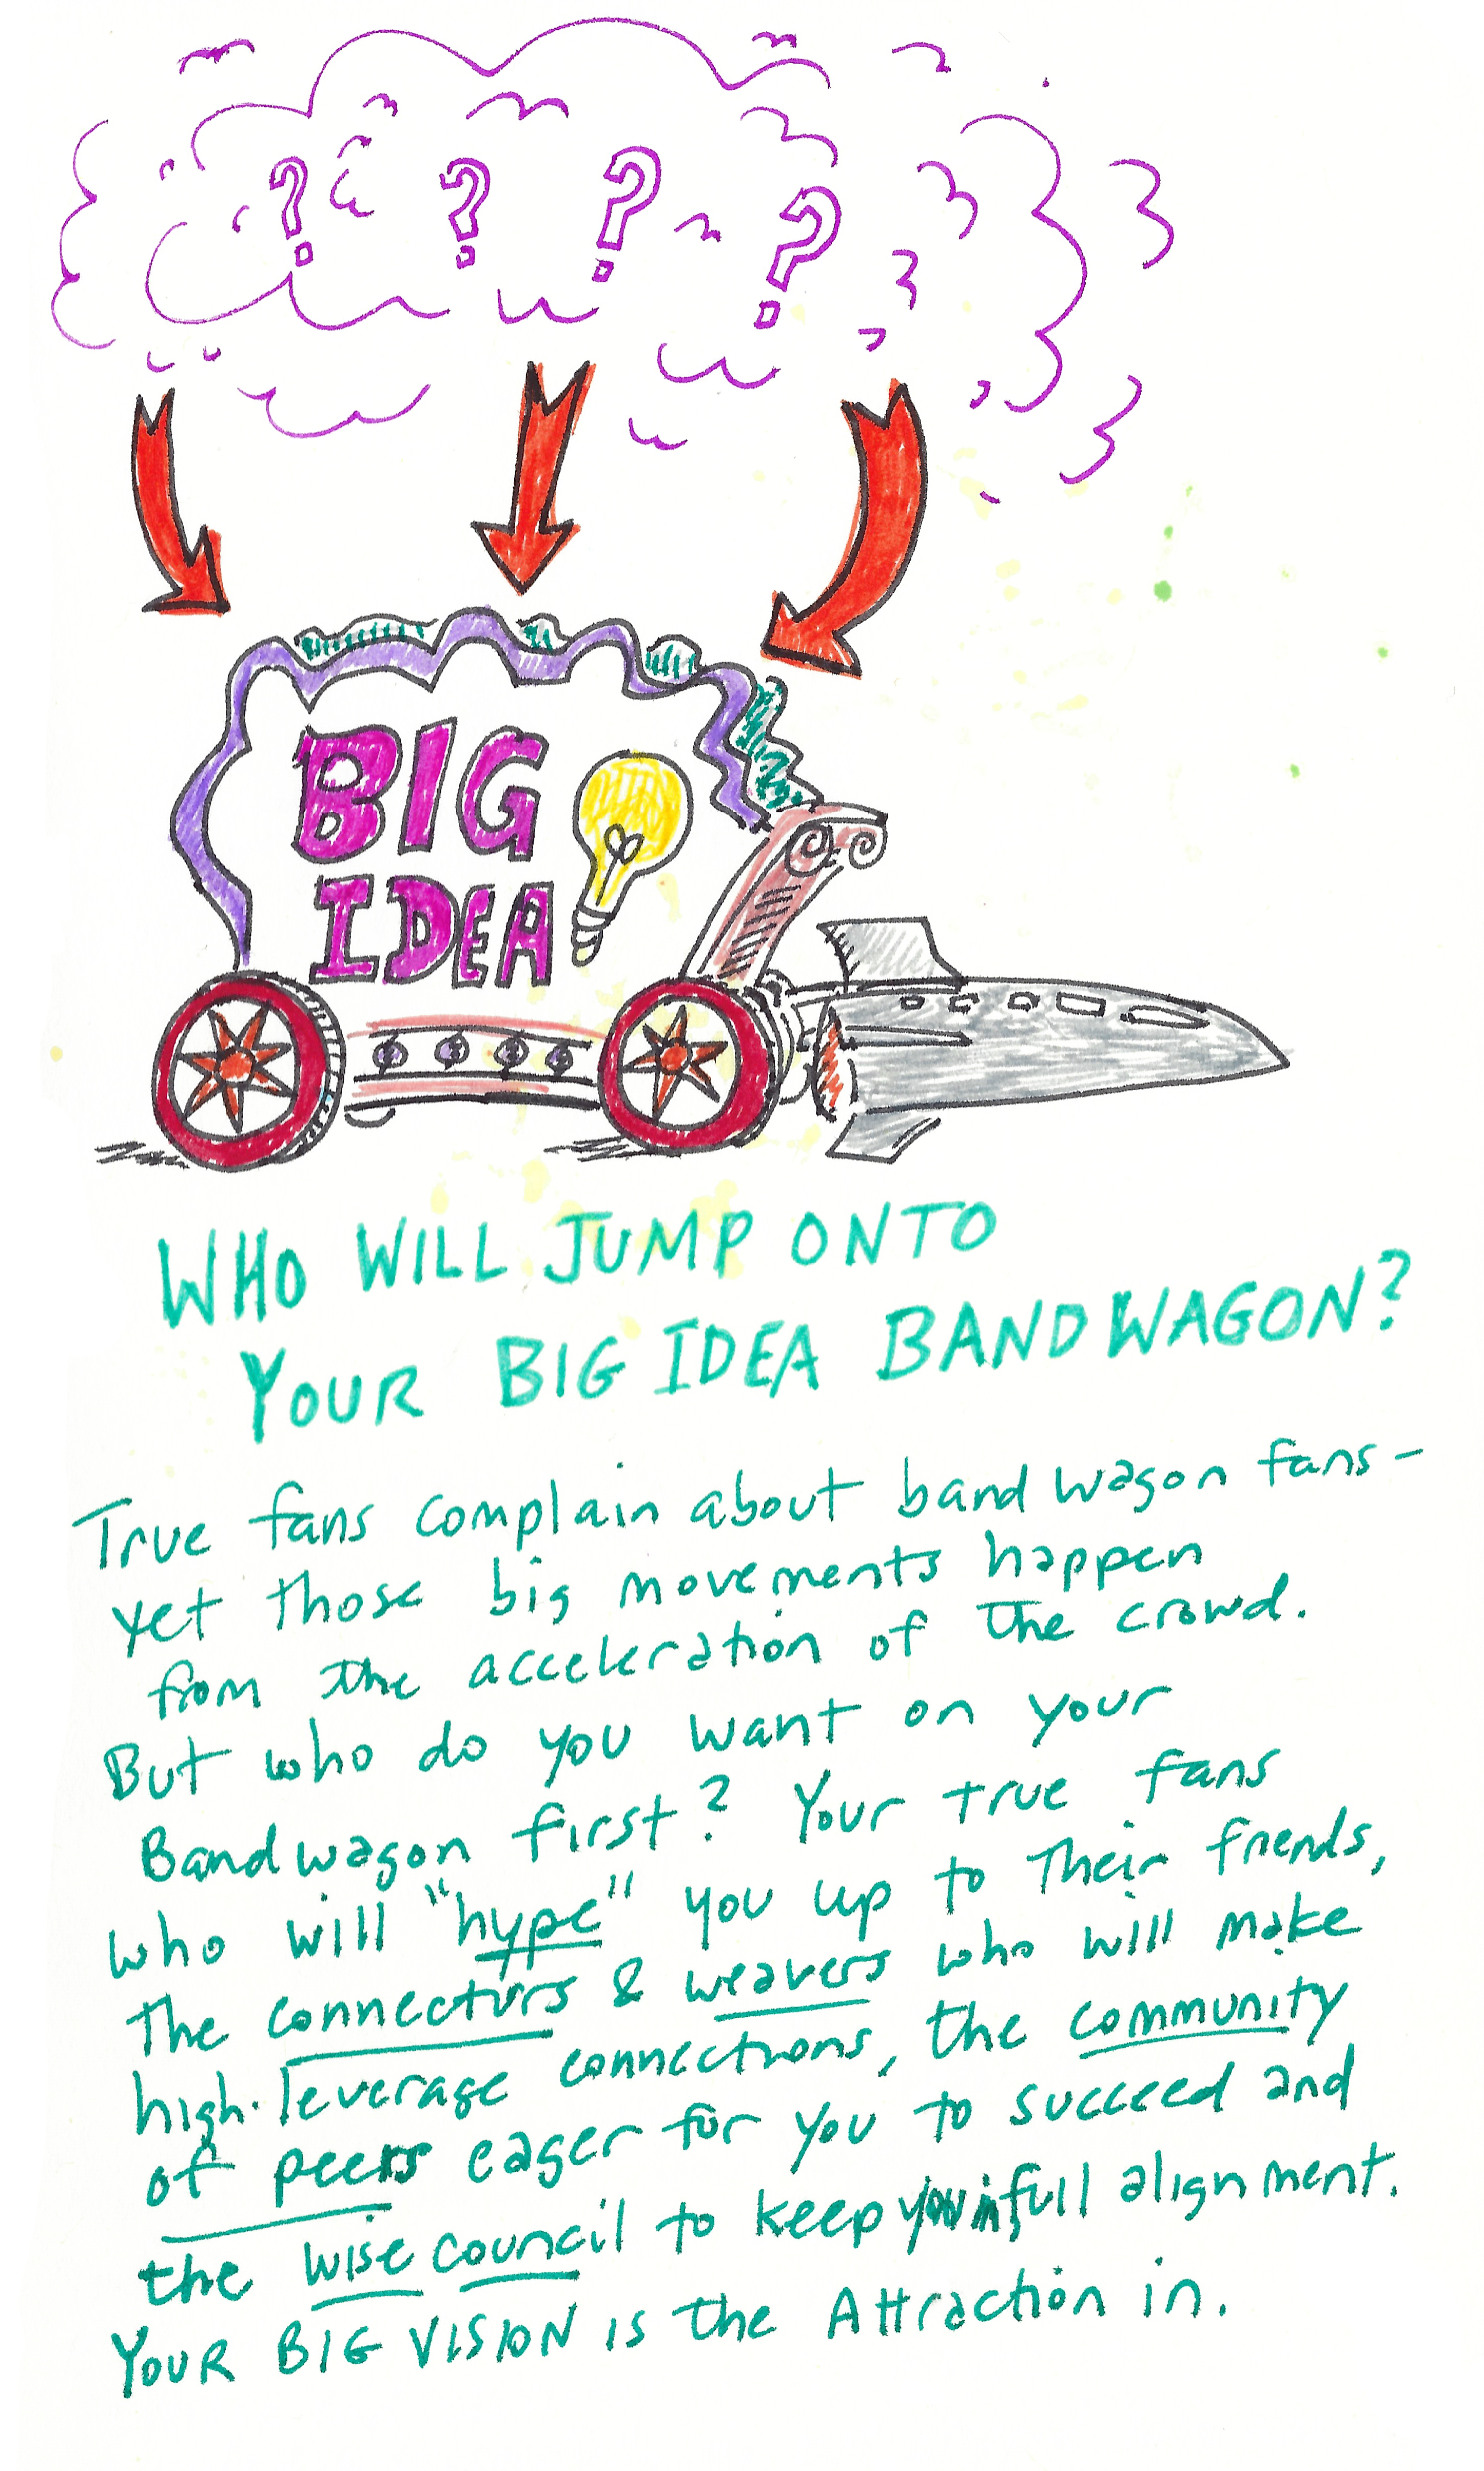 ? ? ? ?
BIG
IDEA
WHO WILL JUMP ONTO
YOUR BIG IDEA BANDWAGON?
True fans complain about band wagon fans -
yet those big movements happen
from the acceleration of the crowd.
But who do you want on your
Bandwagon first? Your true fans
who will "hype" you up to their friends,
The connectors & weavers who will make
high-leverage connections, the community
of peers eager for you to succeed and
the wise council to keep you in full alignment.
YOUR BIG VISION is the Attraction in.